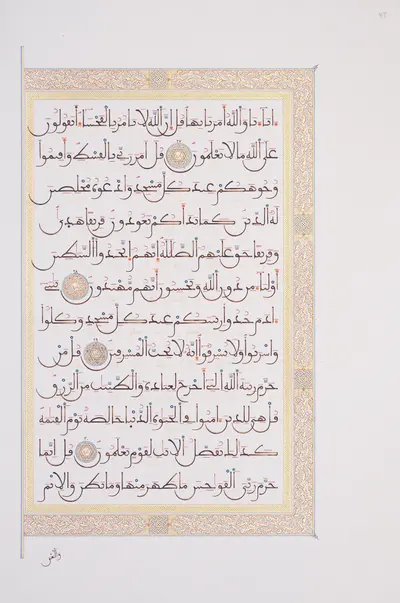 ءاباءنا والله أمرنا بها قل إن الله لا يأمر بالفحشاء أتقولون
على الله ما لا تعلمون قل أمر ربي بالقسط وأقيموا
وجوهكم عند كل مسجد وادعوه مخلصين
له الدين كما بدأكم تعودون فريقا هدى
وفريقا حق عليهم الضللة إنهم اتخذوا الشيطين
أولياء من دون الله ويحسبون أنهم مهتدون يبني
ءادم خذوا زينتكم عند كل مسجد وكلوا
واشربوا ولا تسرفوا إنه لا يحب المسرفين قل من
حرم زينة الله التي أخرج لعباده والطيبت من الرزق
قل هي للذين ءامنوا في الحيوة الدنيا خالصة يوم القيمة
كذلك نفصل الأيت لقوم يعلمون قل إنما
حرم ربي الفواحش ما ظهر منها وما بطن والإثم
والبغي